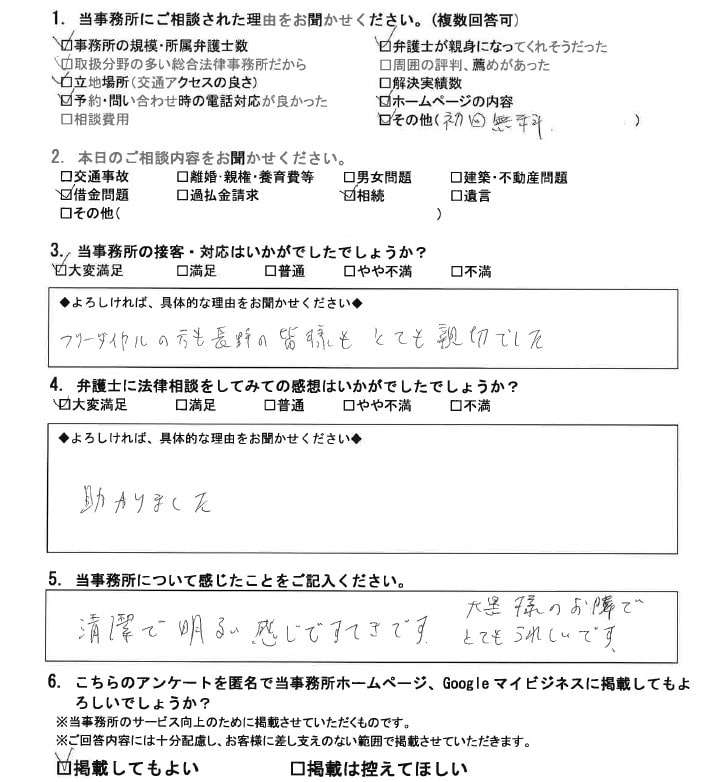 1. 当事務所にご相談された理由をお聞かせください。(複数回答可)
☑事務所の規模・所属弁護士数 ☑弁護士が親身になってくれそうだった
☑取扱分野の多い総合法律事務所だから □周囲の評判、薦めがあった
☑立地場所(交通アクセスの良さ) □解決実績数
☑予約・問い合わせ時の電話対応が良かった ☑ホームページの内容
□相談費用 ☑その他(初回無料 )
2. 本日のご相談内容をお聞かせください。
□交通事故 □離婚・親権・養育費等 □男女問題 □建築・不動産問題
☑借金問題 □過払金請求 ☑相続 □遺言
□その他( )
3. 当事務所の接客・対応はいかがでしたでしょうか?
☑大変満足 □満足 □普通 □やや不満 □不満
◆よろしければ、具体的な理由をお聞かせください◆
フリーダイヤルの方も長野の皆様も とても親切でした
4. 弁護士に法律相談をしてみての感想はいかがでしたでしょうか?
☑大変満足 □満足 □普通 □やや不満 □不満
◆よろしければ、具体的な理由をお聞かせください◆
助かりました
5. 当事務所について感じたことをご記入ください。
清潔で明るい感じですてきです
大黒様のお隣で
とてもうれしいです
6. こちらのアンケートを匿名で当事務所ホームページ、Googleマイビジネスに掲載してもよ
ろしいでしょうか?
※当事務所のサービス向上のために掲載させていただくものです。
※ご回答内容には十分配慮し、お客様に差し支えのない範囲で掲載させていただきます。
☑掲載してもよい □掲載は控えてほしい